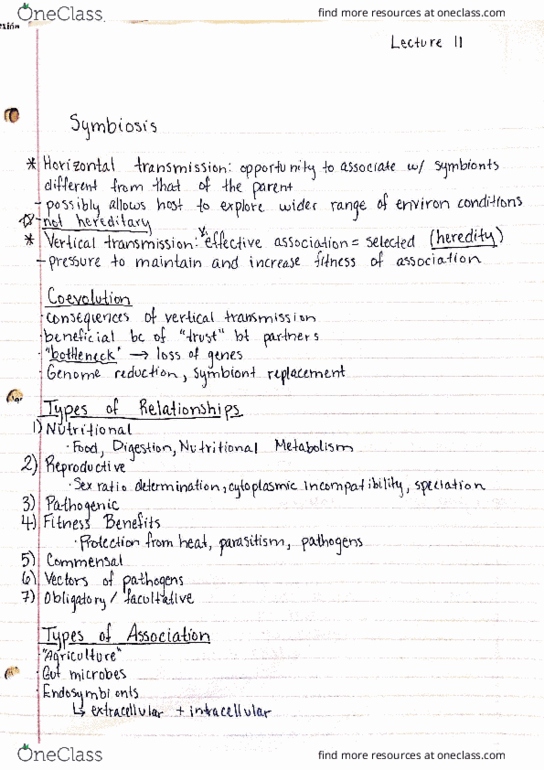 OneClass
find more resources at oneclass.com
Lecture 11
Symbiosis
* Horizontal transmission: opportunity to associate w/ symbionts
different from that of the parent
- possibly allows host to explore wider range of environ conditions
☆ - not hereditary
* Vertical transmission: effective association = selected (heredity)
- pressure to maintain and increase fitness of association
Coevolution
· consequences of vertical transmission
· beneficial bc of "trust" bt partners
· "bottleneck" → loss of genes
· Genome reduction, symbiont replacement
Types of Relationships
1) Nutritional
· Food, Digestion, Nutritional Metabolism
2) Reproductive
· Sex ratio determination, cytoplasmic incompatibility, speciation
3) Pathogenic
4) Fitness Benefits
· Protection from heat, parasitism, pathogens
5) Commensal
6) Vectors of pathogens
7) Obligatory / facultative
Types of Association
· "Agriculture"
· Gut microbes
· Endosymbionts
↳ extracellular + intracellular
OneClass
find more resources at oneclass.com